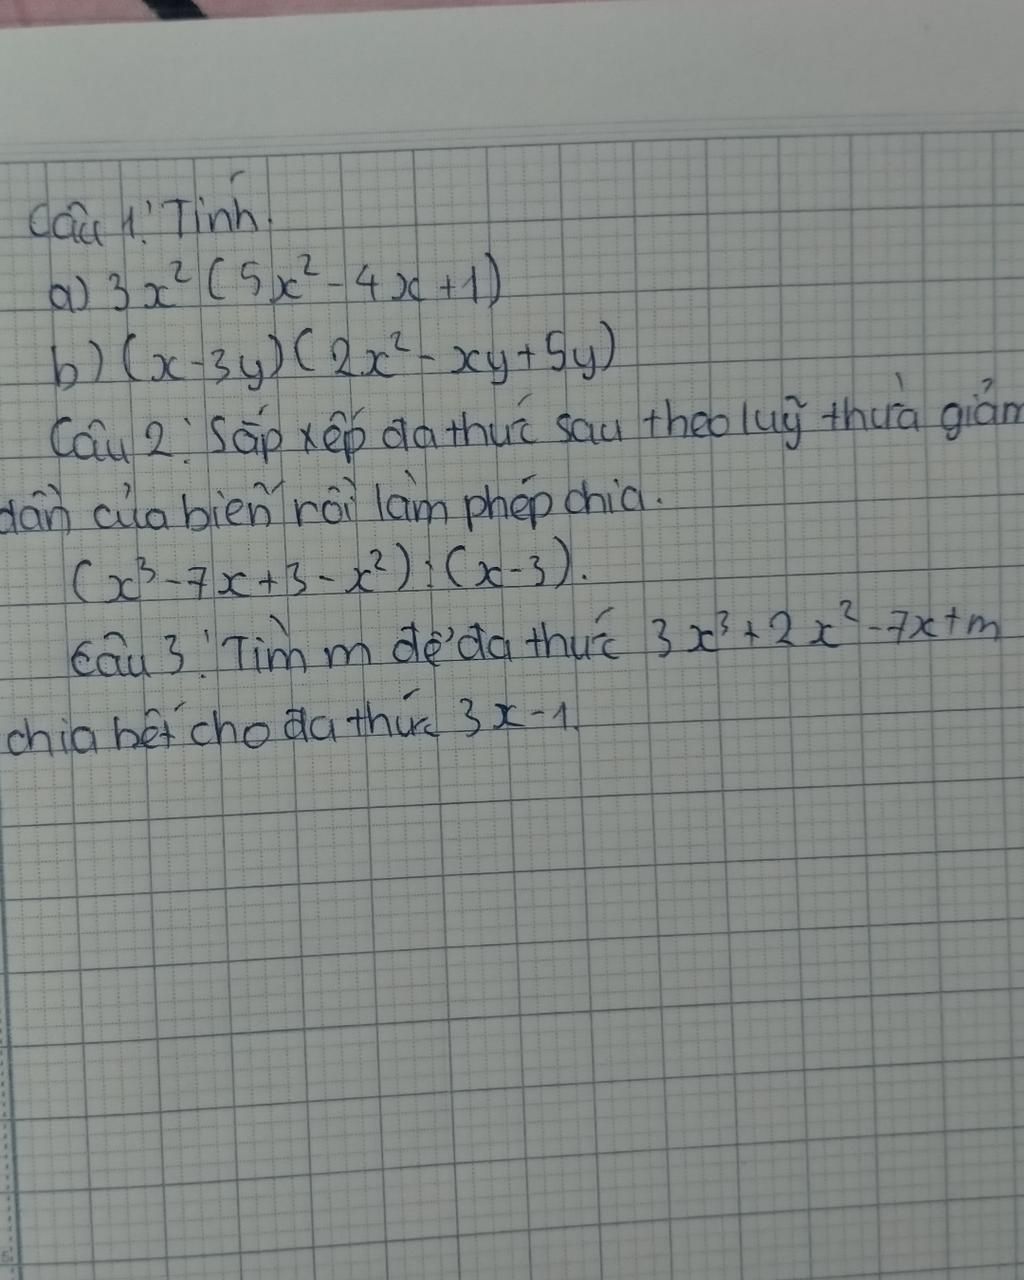 Câu 1: Tính
a) 3x² (5x² - 4x + 1)
b) (x - 3y)(2x² - xy + 5y)
Câu 2: Sắp xếp đa thức sau theo luỹ thừa giảm
dần của biến rồi làm phép chia.
(x³ - 7x + 3 - x²) : (x - 3).
Câu 3: Tìm m để đa thức 3x³ + 2x² - 7x + m
chia hết cho đa thức 3x - 1.